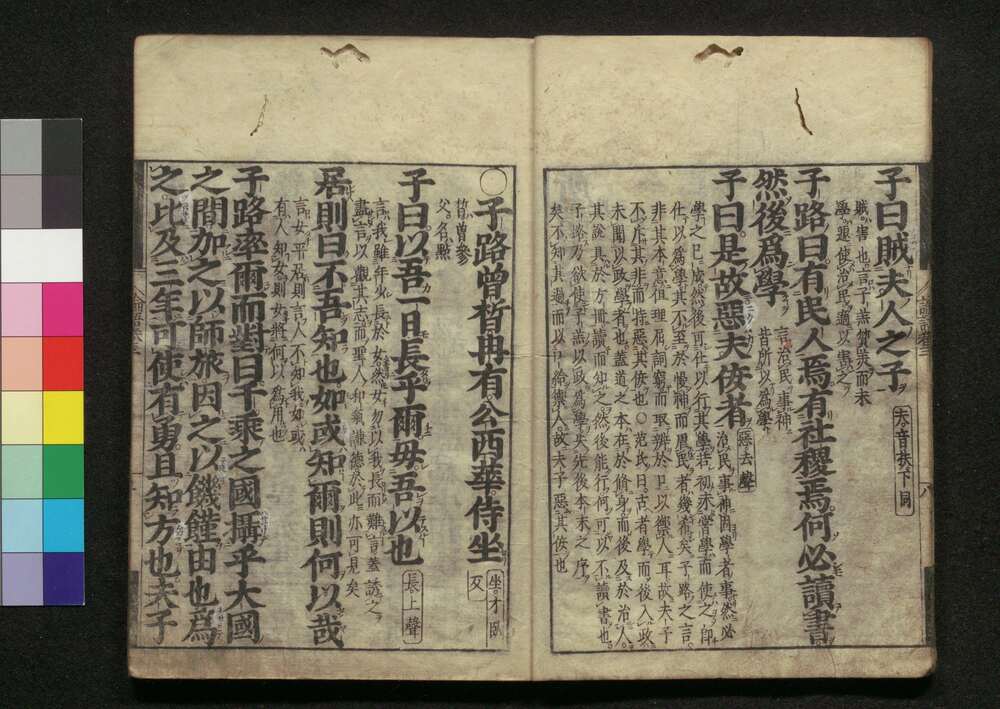 子曰賊夫人之子 夫音扶下同
賊害也言子羔質美而未
學遽使治民適以害之
子路曰有民人焉有社稷焉何必讀書
然後爲學
言治民事神
皆所以爲學
子曰是故惡夫佞者 惡去聲
治民事神固學者事然必
學之已成然後可仕以行其學若初未嘗學而使之卽
仕以爲學其不至於慢神而虐民者幾希矣子路之言
非其本意但理屈詞窮而取辨於口以禦人耳故夫子
不斥其非而特惡其佞也○范氏曰古者學而後入政
未聞以政學者也蓋道之本在於脩身而後及於治人
其說具於方冊讀而知之然後能行何可以不讀書也
子路乃欲使子羔以政爲學失先後本末之序
矣不知其過而以口給禦人故夫子惡其佞也
○子路曾皙冉有公西華侍坐 坐才臥反
皙曾參
父名點
子曰以吾一日長乎爾毋吾以也 長上聲
言我雖年少長於女然女勿以我長而難言蓋誘之
盡言以觀其志而聖人和氣謙德於此亦可見矣
居則曰不吾知也如或知爾則何以哉
言女平居則言人不知我如或
有人知女則女將何以爲用也
子路率爾而對曰千乘之國攝乎大國
之間加之以師旅因之以饑饉由也爲
之比及三年可使有勇且知方也夫子